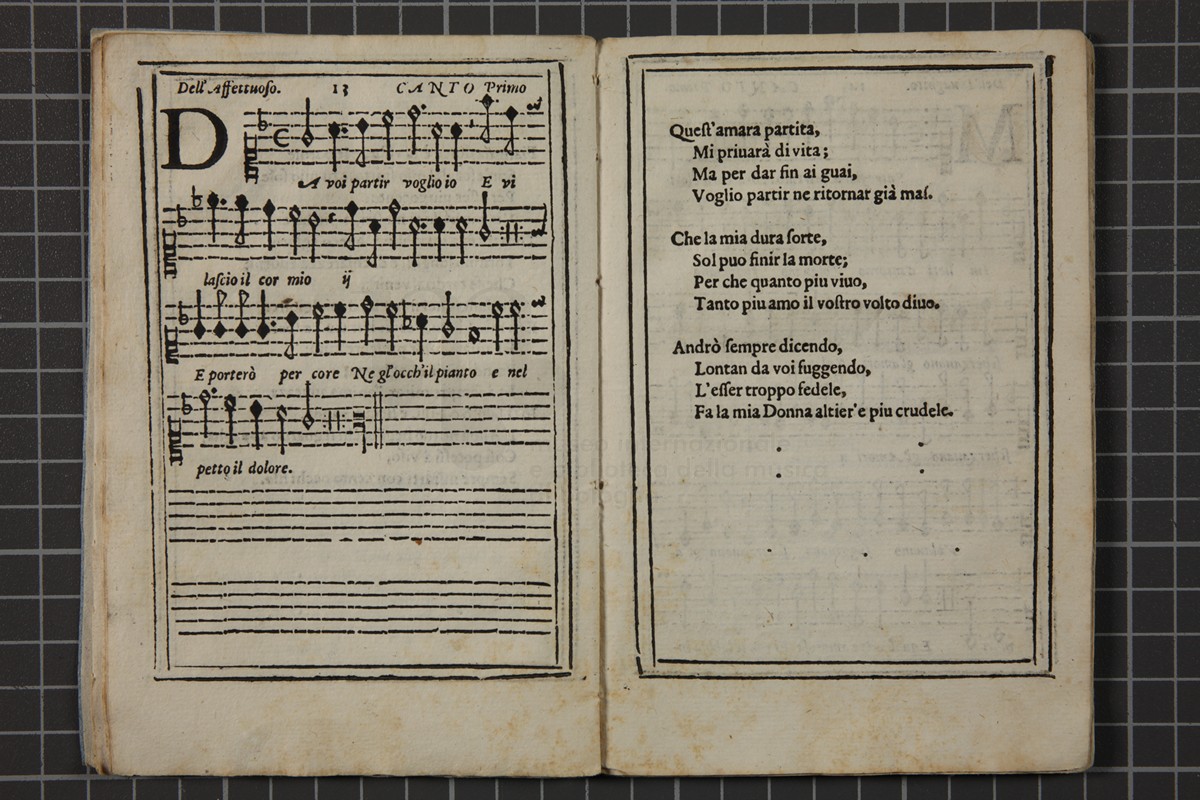 Dell'Affettuoso. 13 CANTO Primo
DA voi partir voglio io E vi
lascio il cor mio ij
E porterò per core Ne gl'occh'il pianto e nel
petto il dolore.
Quest'amara partita,
Mi priuarà di vita;
Ma per dar fin ai guai,
Voglio partir ne ritornar già mai.
Che la mia dura sorte,
Sol puo finir la morte;
Per che quanto piu viuo,
Tanto piu amo il vostro volto diuo.
Andrò sempre dicendo,
Lontan da voi fuggendo,
L'esser troppo fedele,
Fa la mia Donna altier'e piu crudele.
museo internazionale
e biblioteca della musica